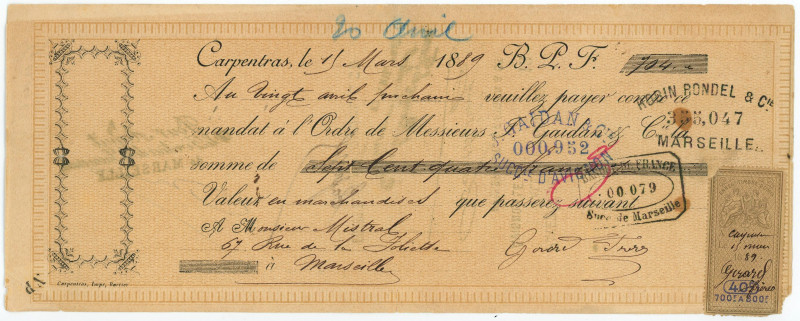 20 Avril
Carpentras, le 15 Mars 1889 B. P. F. 704
Au Vingt avril prochain veuillez payer contre ce
mandat à l'Ordre de Messieurs Gaidan & Cie la
somme de Sept Cent quatre francs
Valeur en marchandises que passerez suivant
A Monsieur Mistral
67 Rue de la Joliette
à Marseille
Girard Frères
ROBIN RONDEL & CIE
355,047
MARSEILLE
GAIDAN & CIE
000,952
SUCC. D'AVIGNON
BANQUE DE FRANCE
00079
Succ. de Marseille
le 15 mars
89
Girard
Frères
40c
700F A 800F
Carpentras, Impr. Barrier